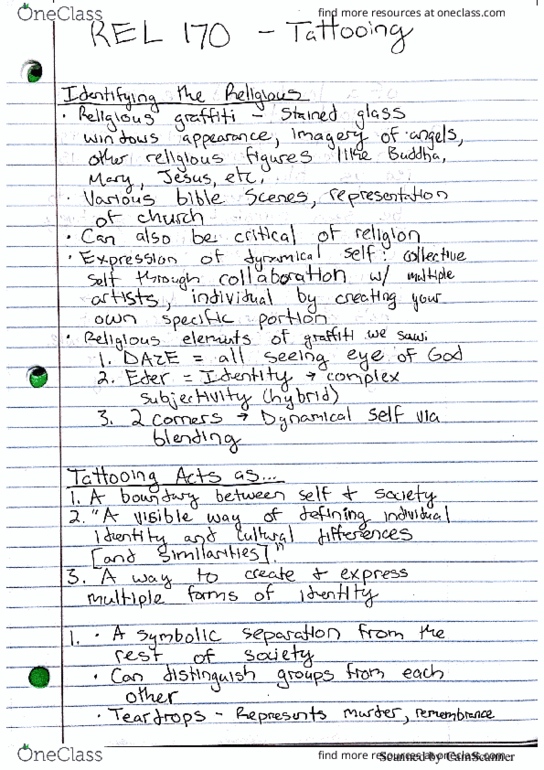 OneClass
find more resources at oneclass.com
REL 170 - Tattooing
Identifying the Religious
· Religious graffiti - Stained glass
windows appearance, imagery of angels,
other religious figures like Buddha,
Mary, Jesus, etc.
· Various bible scenes, representation
of church
· Can also be critical of religion
· Expression of dynamical self: collective
self through collaboration w/ multiple
artists, individual by creating your
own specific portion
· Religious elements of graffiti we saw:
1. DAZE = all seeing eye of God
2. Eder = Identity → complex
subjectivity (hybrid)
3. 2 corners → Dynamical self via
blending
Tattooing Acts as...
1. A boundary between self + society
2. "A visible way of defining individual
identity and cultural differences
[and similarities]."
3. A way to create + express
multiple forms of identity
1. · A symbolic separation from the
rest of society
· Can distinguish groups from each
other
· Teardrops - Represents murder, remembrance
OneClass
find more resources at oneclass.com
Scanned by CamScanner